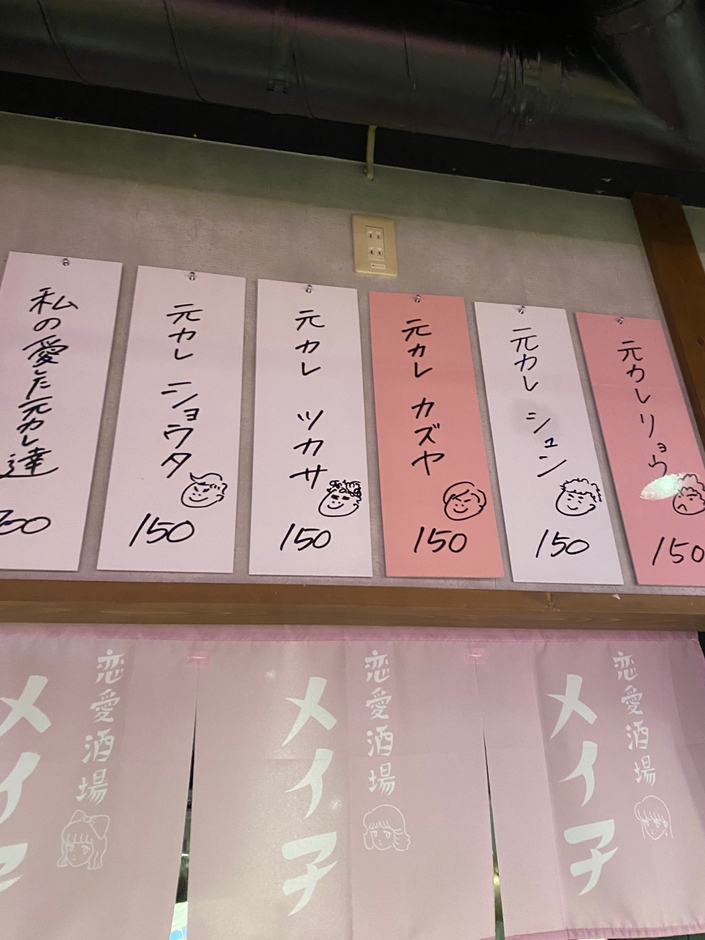 私の愛した元カレ達
元カレ ショウタ
150
元カレ ツカサ
150
元カレ カズヤ
150
元カレ シュン
150
元カレ リョウ
150
恋愛酒場
メイ子
恋愛酒場
メイ子
恋愛酒場
メイ子